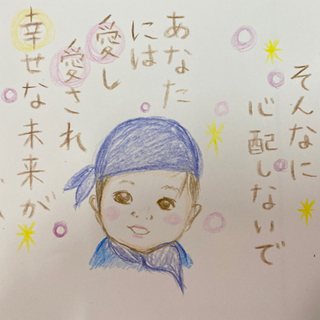 そんなに
心配しないで
あなた
には
愛し
愛され
幸せな未来が